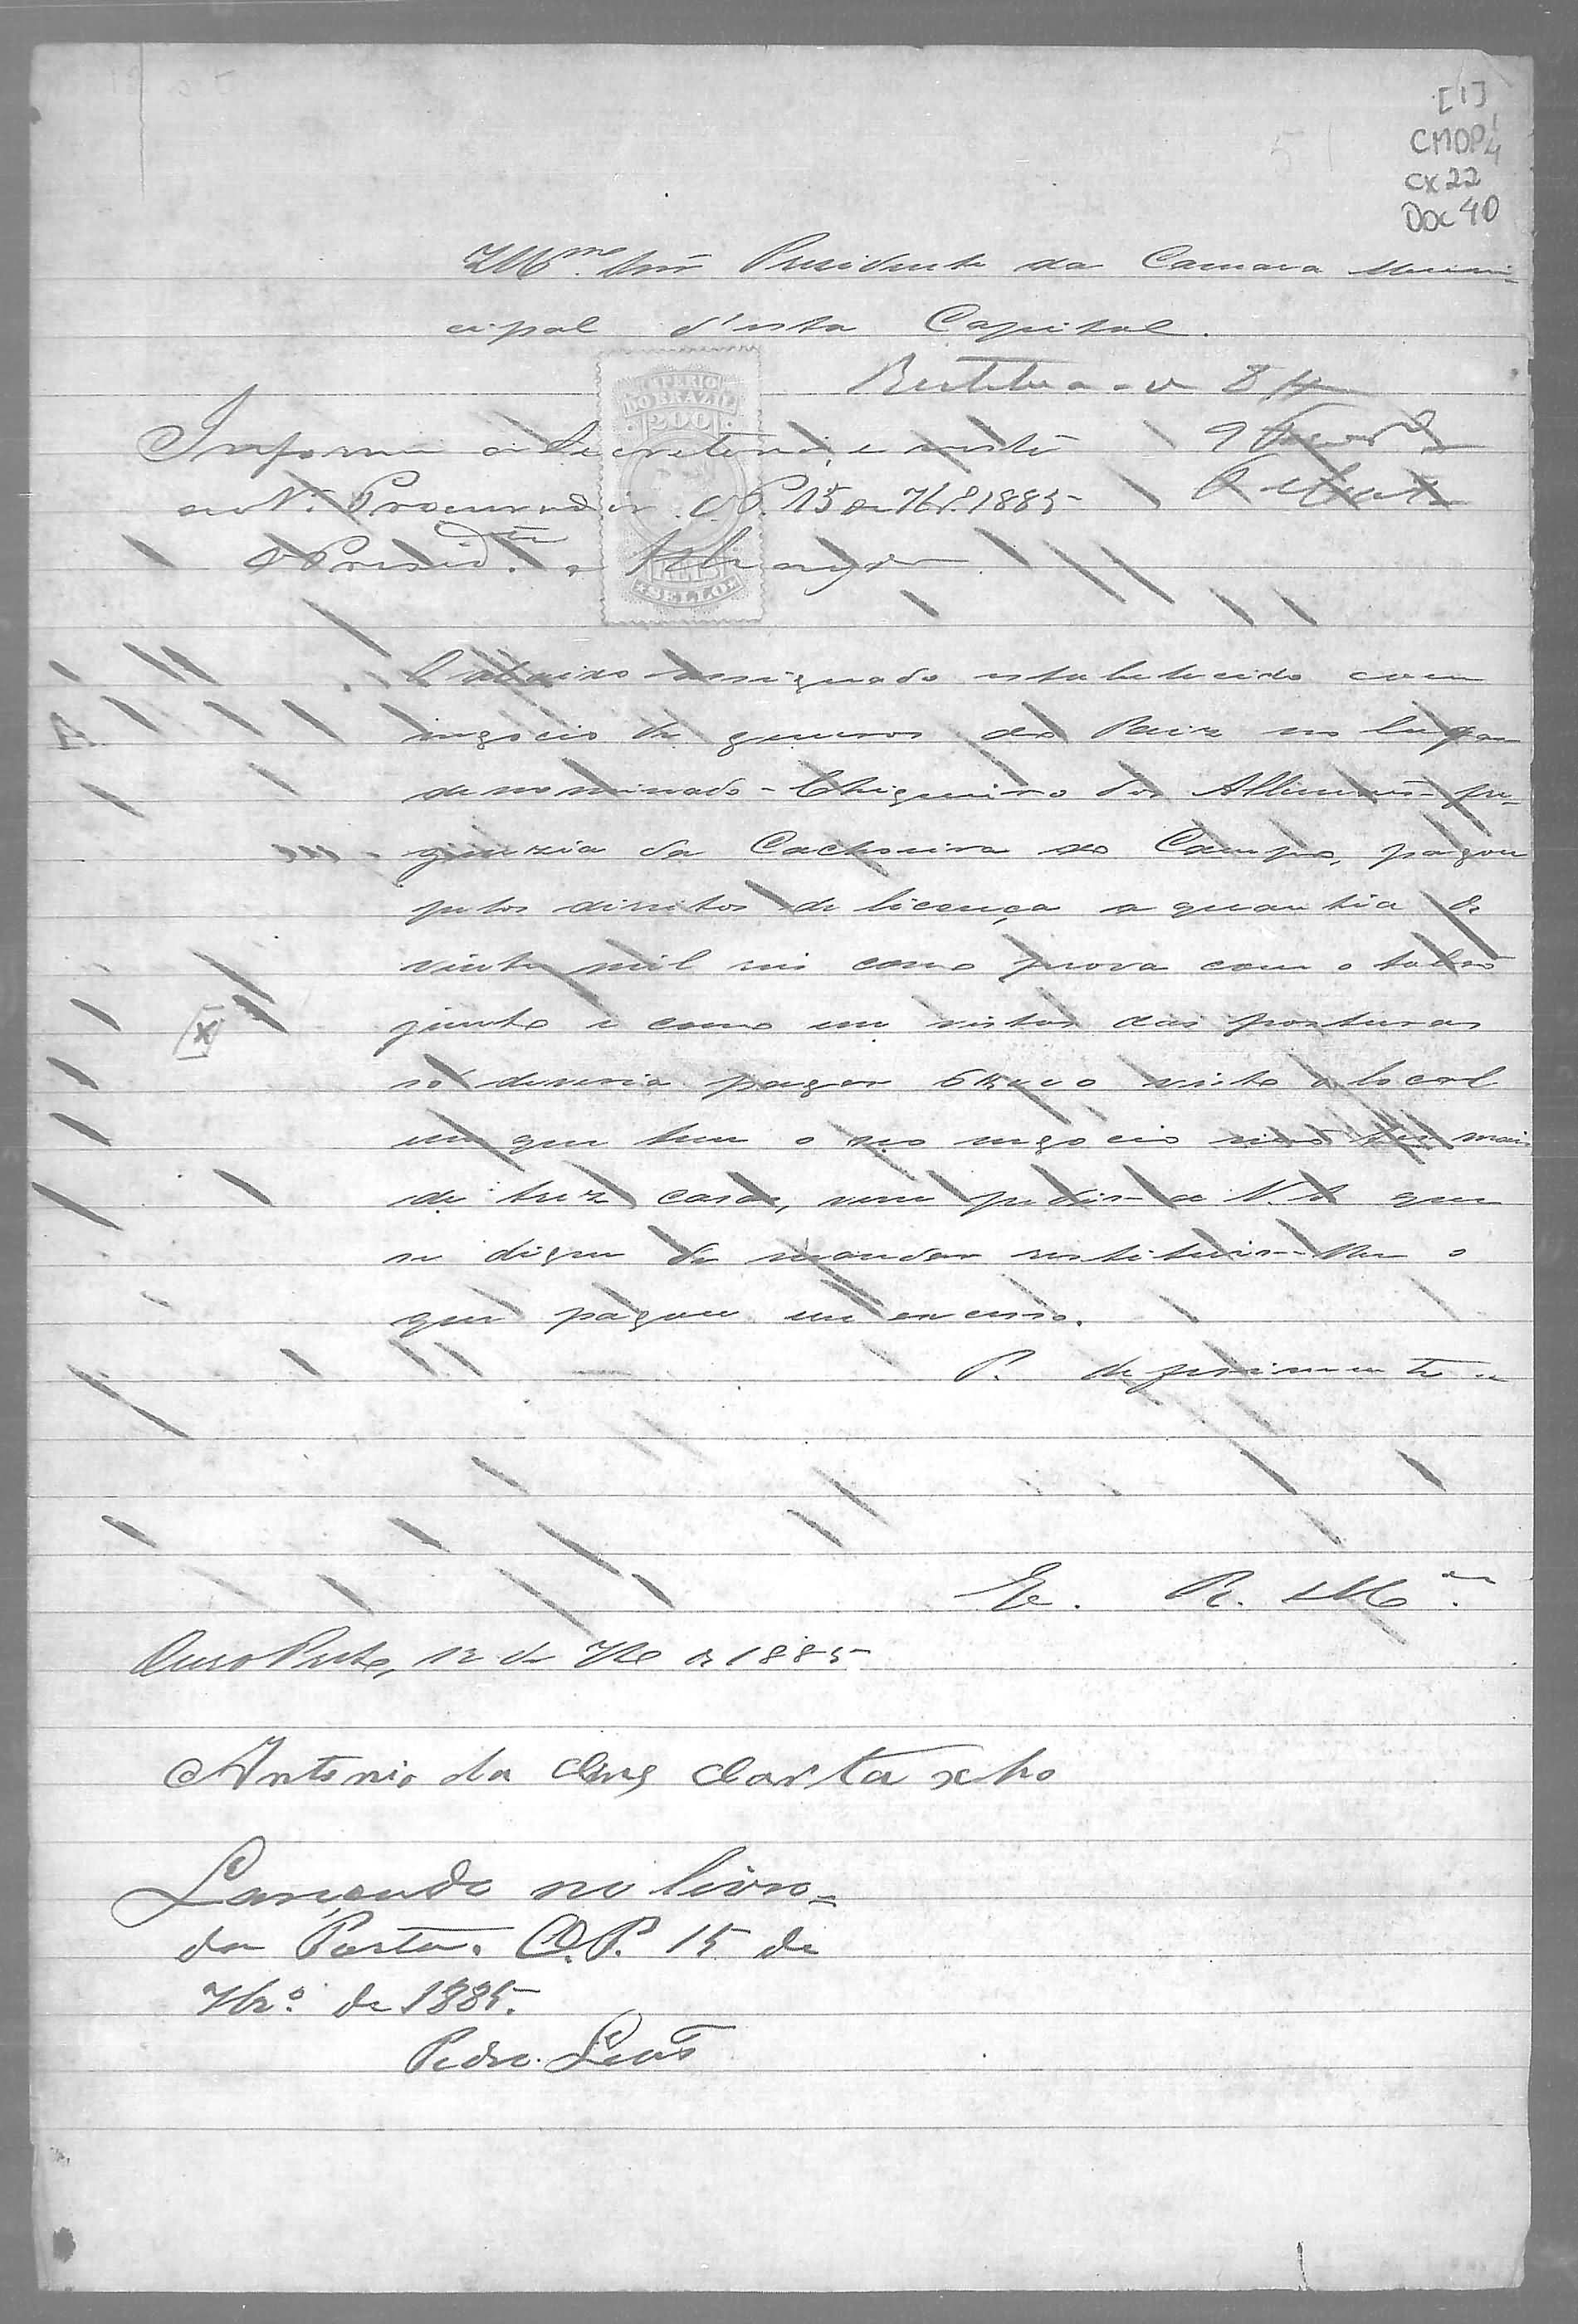 [1]
CMOP
CX 22
DOC 40
Illmo. Snr. Presidente da Camara Muni-
cipal d'esta Capital.
Restitua-se
IMPERIO
DO BRAZIL
200
REIS
SELLO
Informe a Secretaria, e visto
ao Sr. Procurador. O.P. 15 de 7br. 1885
O Presid.te
O abaixo assignado estabelecido com
negocio de generos do Paiz no lugar
denominado - Chiqueiro dos Allemães - fre-
guezia da Cachoeira do Campo, pagou
pelos direitos de licença a quantia de
vinte mil reis como prova com o talão
junto e como em vista das posturas
só deveria pagar visto o local
em que tem o seo negocio não ter mais
de trez casas, vem pedir a V. S. que
se digne de mandar restituir-lhe o
que pagou em excesso.
P. deferimento
E. R. Mce.
Ouro Preto, 12 de 7bro de 1885
Antonio da Cartaxho
Lançando no livro
da Porta. O.P. 15 de
7bro. de 1885.
Pedro